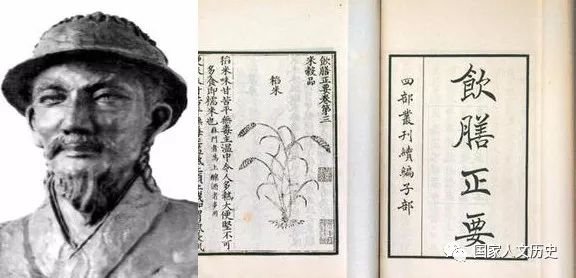 飲膳正要
四部叢刊續編子部
飲膳正要卷第三
米穀品
稻米
稻米味甘苦平無毒主溫中令人多熱大便堅不可
多食即糯米也蘇門者為上釀酒者多用
国家人文历史